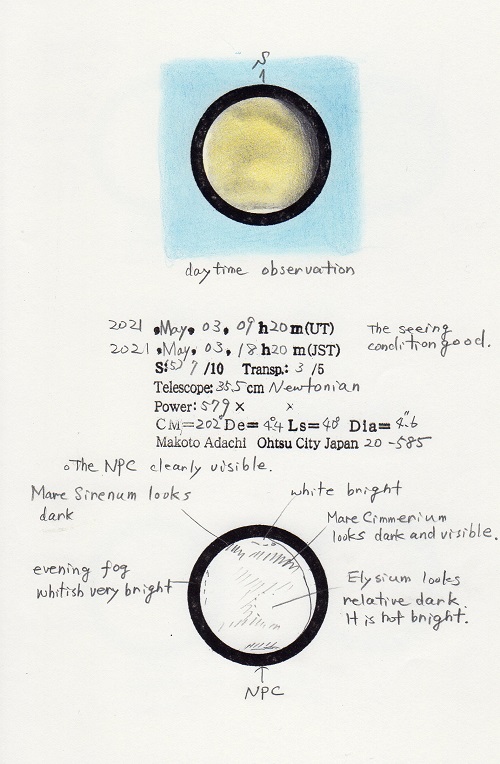 S
daytime observation
2021 May. 03. 09 h 20 m (UT)
2021 May. 03. 18 h 20 m (JST)
The seeing
condition good.
S: (5) 7 /10 Transp.: 3 /5
Telescope: 35.5 cm Newtonian
Power: 579 × ×
CM=202° De=4.°4 Ls=40° Dia=4."6
Makoto Adachi Ohtsu City Japan 20-585
○The NPC clearly visible.
Mare Sirenum looks
dark
white bright
Mare Cimmerium
looks dark and visible.
evening fog
whitish very bright
Elysium looks
relative dark.
It is not bright.
NPC